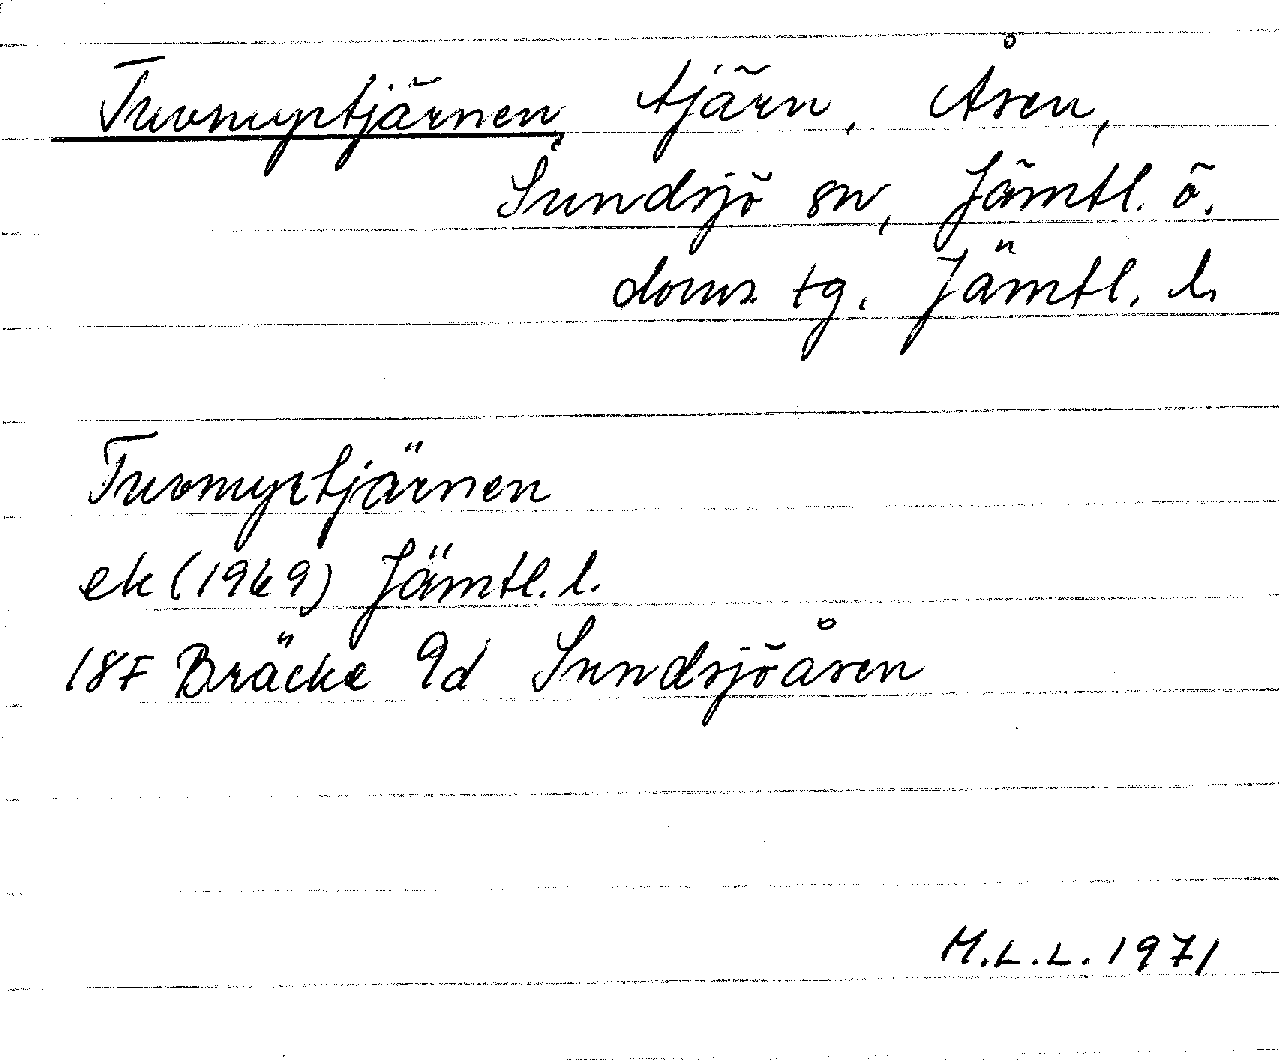 Tuvmyrtjärnen, tjärn, Åsen,
Sundsjö sn, Jämtl. ö.
doms tg. Jämtl. l.
Tuvmyrtjärnen
ek (1969) Jämtl. l.
18F Bräcke 9d Sundsjöåsen
M.L.L. 1971